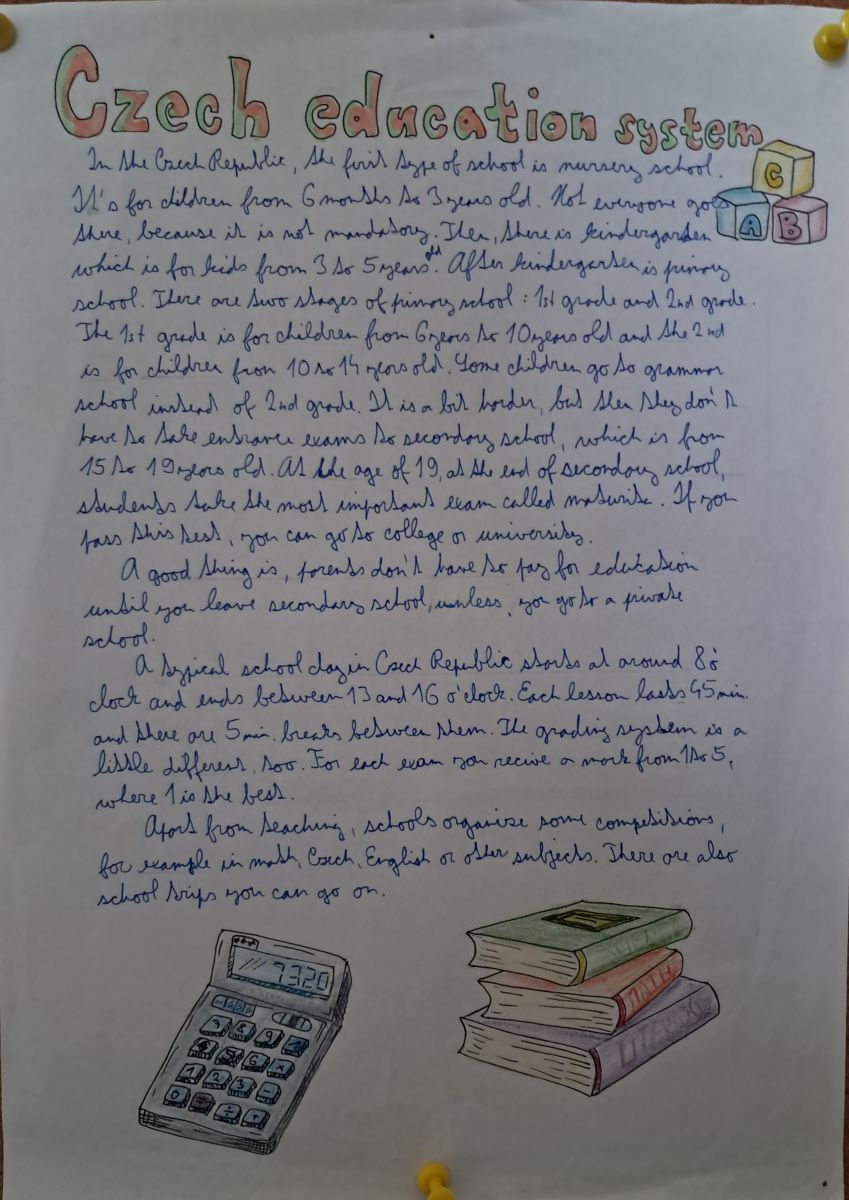 Czech education system
In the Czech Republic, the first type of school is nursery school.
It's for children from 6 months to 3 years old. Not everyone goes
there, because it is not mandatory. Then, there is kindergarden
which is for kids from 3 to 5 years old. After kindergarten is primary
school. There are two stages of primary school: 1st grade and 2nd grade.
The 1st grade is for children from 6 years to 10 years old and the 2nd
is for children from 10 to 14 years old. Some children go to grammar
school instead of 2nd grade. It is a bit harder, but then they don't
have to take entrance exams to secondary school, which is from
15 to 19 years old. At the age of 19, at the end of secondary school,
students take the most important exam called maturita. If you
pass this test, you can go to college or university.
A good thing is, parents don't have to pay for education
until you leave secondary school, unless, you go to a private
school.
A typical school day in Czech Republic starts at around 8 o'
clock and ends between 13 and 16 o'clock. Each lesson lasts 45 min.
and there are 5 min. breaks between them. The grading system is a
little different, too. For each exam you recive a mark from 1 to 5,
where 1 is the best.
Apart from teaching, schools organize some competitions,
for example in math, Czech, English or other subjects. There are also
school trips you can go on.
C
A B
7320
MATH
7 8 9
6
1 2 3 -
0 = ÷ +